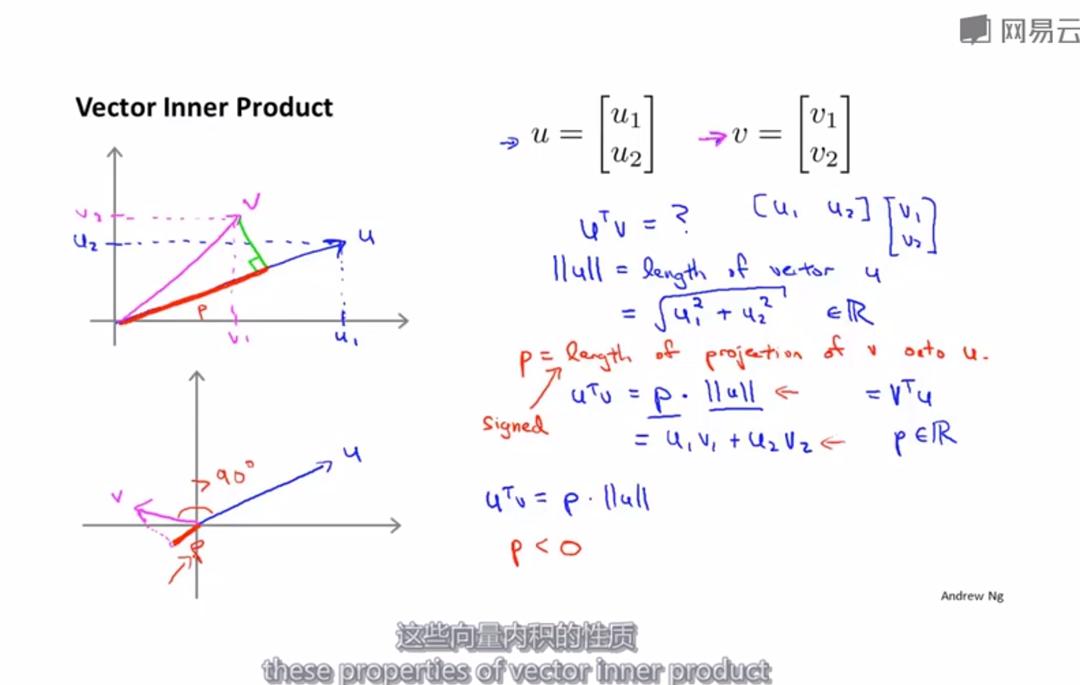 网易云
Vector Inner Product
→ u = [u1 u2]
→ v = [v1 v2]
v
v2
u2
u
p
v1
u1
uᵀv = ?
[u1 u2] [v1 v2]
||u|| = length of vector u
= √(u1² + u2²) ∈ ℝ
p = length of projection of v onto u.
signed
uᵀv = p · ||u|| ← = vᵀu
= u1v1 + u2v2 ← p ∈ ℝ
uᵀv = p · ||u||
p < 0
> 90°
u
v
p
Andrew Ng
这些向量内积的性质
these properties of vector inner product